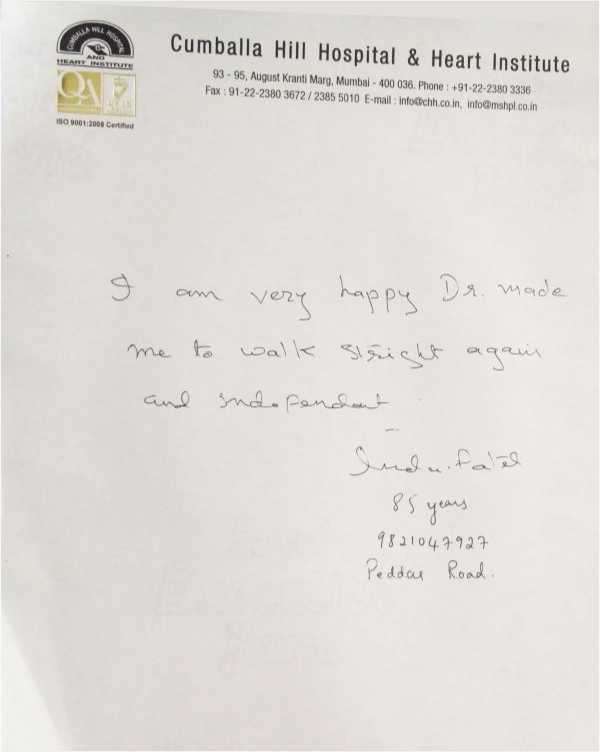 CUMBALLA HILL HOSPITAL
AND
HEART INSTITUTE
QA
ISO 9001:2008 Certified
Cumballa Hill Hospital & Heart Institute
93 - 95, August Kranti Marg, Mumbai - 400 036. Phone : +91-22-2380 3336
Fax : 91-22-2380 3672 / 2385 5010 E-mail : info@chh.co.in, info@mshpl.co.in
I am very happy Dr. made
me to walk stright again
and independent
Indu. Patel
85 years
9821047927
Peddar Road.